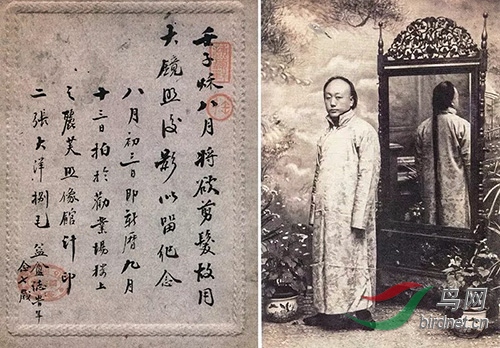 壬子秋八月將欲剪髮故用
大鏡照後影以留紀念
八月初三日即新曆九月
十三日拍於勸業場樓上
之麗芙照像館計印
二張大洋捌毛 益盦誌旹年
廿七歲
鸟网
birdnet.cn